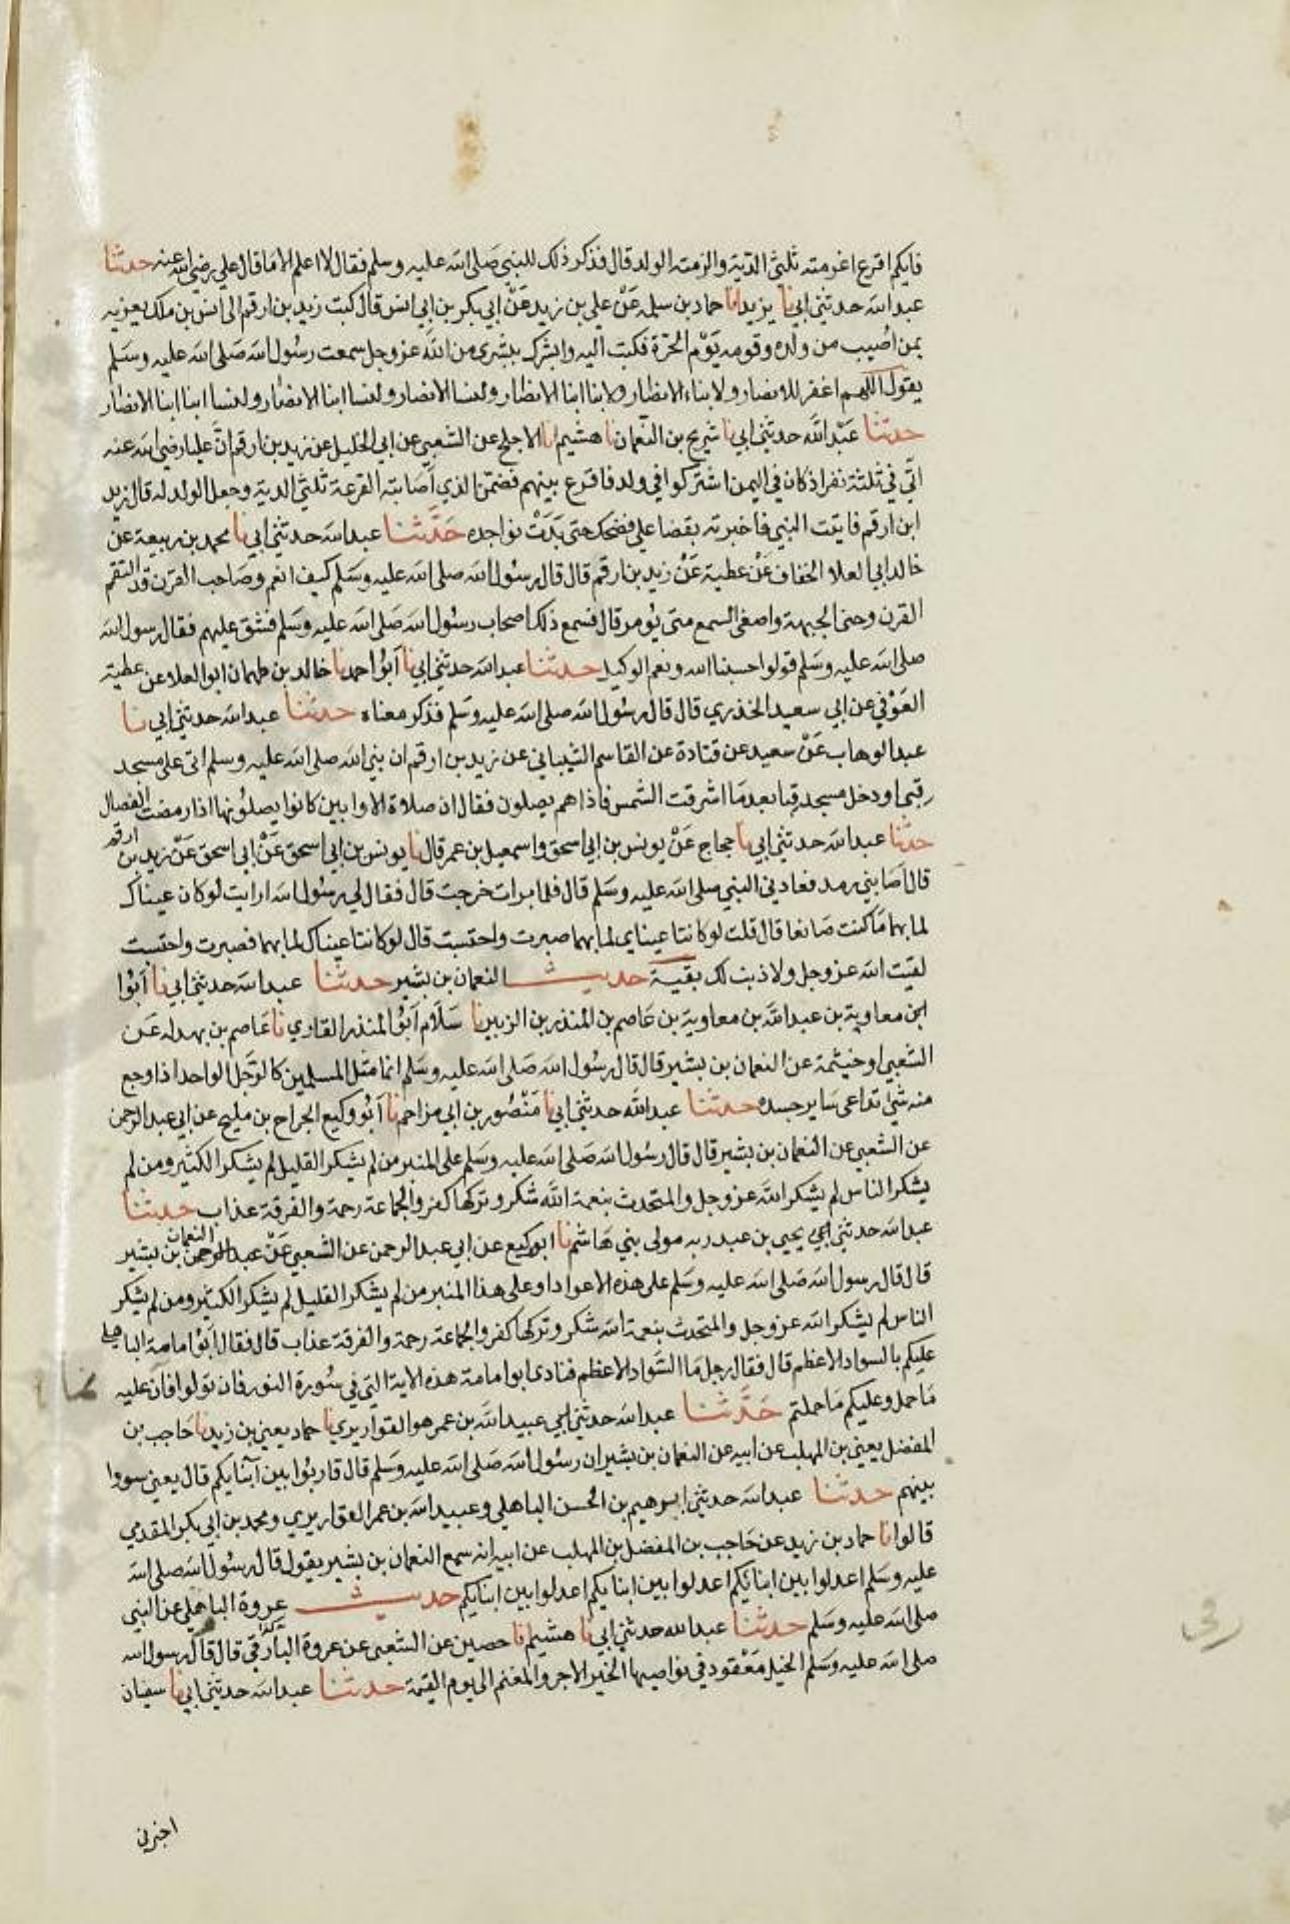 فايكم اقرع اغرمته ثلثي الدية والزمته الولد قال فذكر ذلك للنبي صلى الله عليه وسلم فقال لا اعلم الا ما قال علي رضي الله عنه حدثنا
عبد الله حدثني ابي نا يزيد انا حماد بن سلمه عن علي بن زيد عن ابي بكر بن ابي انس قال كتب زيد بن ارقم الى انس بن ملك يعزيه
بمن اصيب من ولده وقومه يوم الحرة فكتب اليه وابشرك ببشرى من الله عز وجل سمعت رسول الله صلى الله عليه وسلم
يقول اللهم اغفر للانصار ولابناء الانصار ولابنا ابنا الانصار ولنسا الانصار ولنسا ابنا الانصار ولنسا ابنا ابنا الانصار
حدثنا عبد الله حدثني ابي نا شريح بن النعمان نا هشيم انا الاجلح عن الشعبي عن ابي الخليل عن زيد بن ارقم ان عليا رضي الله عنه
اتي في ثلثة نفر اذ كان في اليمن اشتركوا في ولد فاقرع بينهم فضمن الذي اصابته القرعة ثلثي الدية وجعل الولد له قال زيد
ابن ارقم فايتت النبي فاخبرته بقضا علي فضحك حتى بدت نواجده حدثنا عبد الله حدثني ابي نا محمد بن ربيعة عن
خالد ابي العلا الخفاف عن عطية عن زيد بن ارقم قال قال رسول الله صلى الله عليه وسلم كيف انعم وصاحب القرن قد التقم
القرن وحنى الجبهة واصغى السمع متى يؤمر قال فسمع ذلك اصحاب رسول الله صلى الله عليه وسلم فشق عليهم فقال رسول الله
صلى الله عليه وسلم قولوا حسبنا الله ونعم الوكيل حدثنا عبد الله حدثني ابي نا ابو احمد نا خالد بن طهمان ابو العلا عن عطية
العوفي عن ابي سعيد الخدري قال قال رسول الله صلى الله عليه وسلم فذكر معناه حدثنا عبد الله حدثني ابي نا
عبد الوهاب عن سعيد عن قتادة عن القاسم الشيباني عن زيد بن ارقم ان نبي الله صلى الله عليه وسلم اتى على مسجد
قبا او دخل مسجد قبا بعد ما اشرقت الشمس فاذا هم يصلون فقال ان صلاة الاوابين كانوا يصلونها اذا رمضت الفصال
حدثنا عبد الله حدثني ابي نا حجاج عن يونس بن ابي اسحق واسمعيل بن عمر قال نا يونس بن ابي اسحق عن ابي اسحق عن زيد بن ارقم
قال اصابني رمد فعادني النبي صلى الله عليه وسلم قال فلما برات خرجت قال فقال لي رسول الله ارايت لو كان عيناك
لما بهما ما كنت صانعا قال قلت لو كانتا عيناي لما بهما صبرت واحتسبت قال لو كانتا عيناك لما بهما فصبرت واحتسبت
لقيت الله عز وجل ولا ذنب لك بقية حديث النعمان بن بشير حدثنا عبد الله حدثني ابي نا ابوا
بن معاوية بن عبد الله بن معاوية بن عاصم بن المنذر بن الزبير نا سلام ابو المنذر القاري نا عاصم بن بهدله عن
الشعبي او خيثمة عن النعمان بن بشير قال قال رسول الله صلى الله عليه وسلم انما مثل المسلمين كالرجل الواحد اذا وجع
منه شي تداعى ساير جسده حدثنا عبد الله حدثني ابي نا منصور بن ابي مزاحم نا ابو وكيع الجراح بن مليح عن ابي عبد الرحمن
عن الشعبي عن النعمان بن بشير قال قال رسول الله صلى الله عليه وسلم على المنبر من لم يشكر القليل لم يشكر الكثير ومن لم
يشكر الناس لم يشكر الله عز وجل والمتحدث بنعمة الله شكر وتركها كفر والجماعة رحمة والفرقة عذاب حدثنا
عبد الله حدثني ابي يحيى بن عبد ربه مولى بني هاشم نا ابو وكيع عن ابي عبد الرحمن عن الشعبي عن عبد الرحمن النعمان بن بشير
قال قال رسول الله صلى الله عليه وسلم على هذه الاعواد او على هذا المنبر من لم يشكر القليل لم يشكر الكثير ومن لم يشكر
الناس لم يشكر الله عز وجل والمتحدث بنعمة الله شكر وتركها كفر والجماعة رحمة والفرقة عذاب قال فقال ابوا مامة الباهلي
عليكم بالسواد الاعظم قال فقال رجل ما السواد الاعظم فنادى ابوا مامة هذه الاية التي في سورة النور فان تولوا فان عليه
ما حمل وعليكم ما حملتم حدثنا عبد الله حدثني ابي عبيد الله بن عمر هو القواريري نا حماد يعني بن زيد نا حاجب بن
المفضل يعني بن المهلب عن ابيه عن النعمان بن بشير ان رسول الله صلى الله عليه وسلم قال قاربوا بين ابنايكم قال يعني سووا
بينهم حدثنا عبد الله حدثني ابرهيم بن الحسن الباهلي وعبيد الله بن عمر القواريري ومحمد بن ابي بكر المقدمي
قالوا نا حماد بن زيد عن حاجب بن المفضل بن المهلب عن ابيه انه سمع النعمان بن بشير يقول قال رسول الله صلى الله
عليه وسلم اعدلوا بين ابنائكم اعدلوا بين ابنايكم اعدلوا بين ابنايكم حديث عروة الباهلي عن النبي
صلى الله عليه وسلم حدثنا عبد الله حدثني ابي نا هشيم نا حصين عن الشعبي عن عروة البارقي قال قال رسول الله
صلى الله عليه وسلم الخيل معقود في نواصيها الخير الاجر والمغنم الى يوم القيمة حدثنا عبد الله حدثني ابي نا سفيان
اخبرني